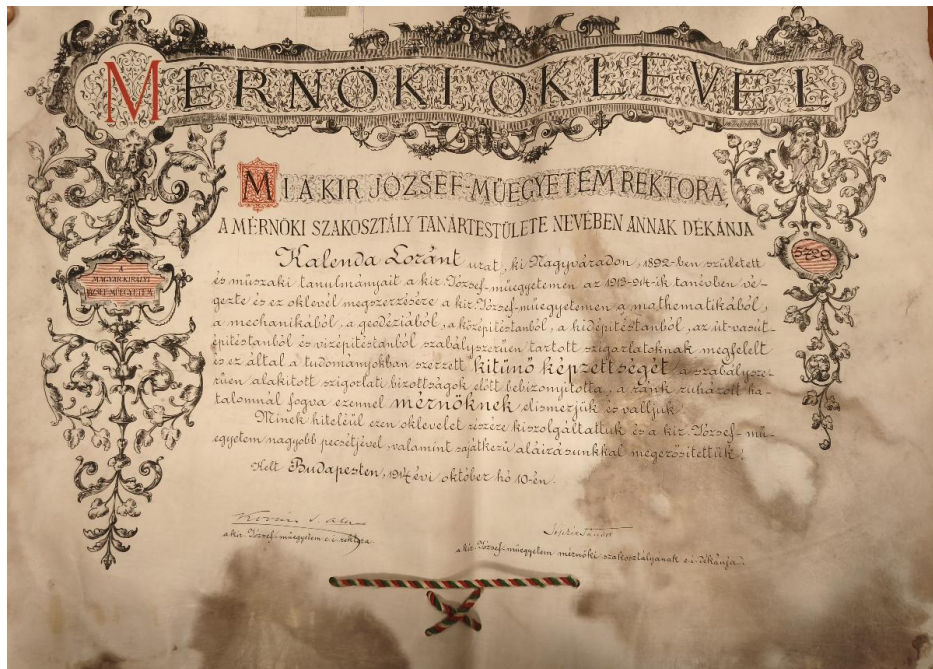 MÉRNÖKI OKLEVÉL
MI A KIR JÓZSEF-MŰEGYETEM REKTORA,
A MÉRNÖKI SZAKOSZTÁLY TANÁRTESTÜLETE NEVÉBEN ANNAK DÉKÁNJA
Kalenda Loránt urat, ki Nagyváradon, 1892-ben született
és műszaki tanulmányait a kir. József-műegyetemen az 1913-914-ik tanévben vé-
gezte és ez oklevél megszerzésére a kir. József-műegyetemen a mathematikából,
a mechanikából, a geodéziából, a középítéstanból, a hídépítéstanból, az út-vasút-
építéstanból és vízépítéstanból szabályszerűen tartott szigorlatoknak megfelelt
és ez által a tudományokban szerzett kitünő képzettségét a szabálysze-
rűen alakított szigorlati bizottságok előtt bebizonyította, a reánk ruházott ha-
talomnál fogva ezennel mérnöknek elismerjük és valljuk.
Minek hiteléül ezen oklevelet részére kiszolgáltattuk és a kir. József-mű-
egyetem nagyobb pecsétjével, valamint sajátkezű aláírásunkkal megerősítettük.
Kelt Budapesten, 1914 évi október hó 10-én.
A
MAGYAR KIRÁLYI
JÓZSEF-MŰEGYETEM
a kir. József-műegyetem e. i. rektora.
a kir. József-műegyetem mérnöki szakosztályának e. i. dékánja.